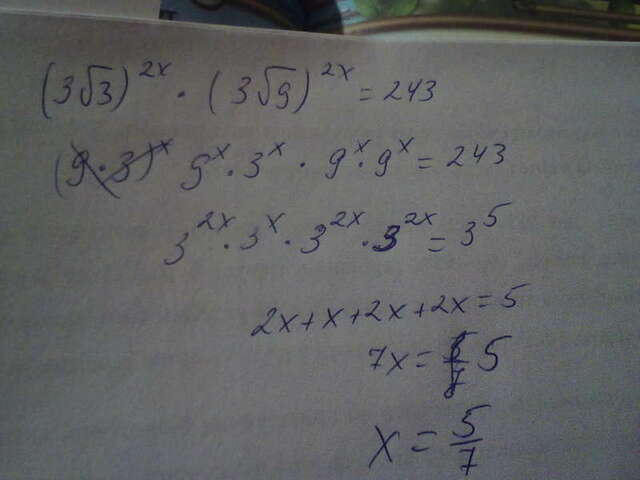 (3√3)^2x · (3√9)^2x = 243
9^x · 3^x · 9^x · 9^x = 243
3^2x · 3^x · 3^2x · 3^2x = 3^5
2x + x + 2x + 2x = 5
7x = 5
x = 5/7